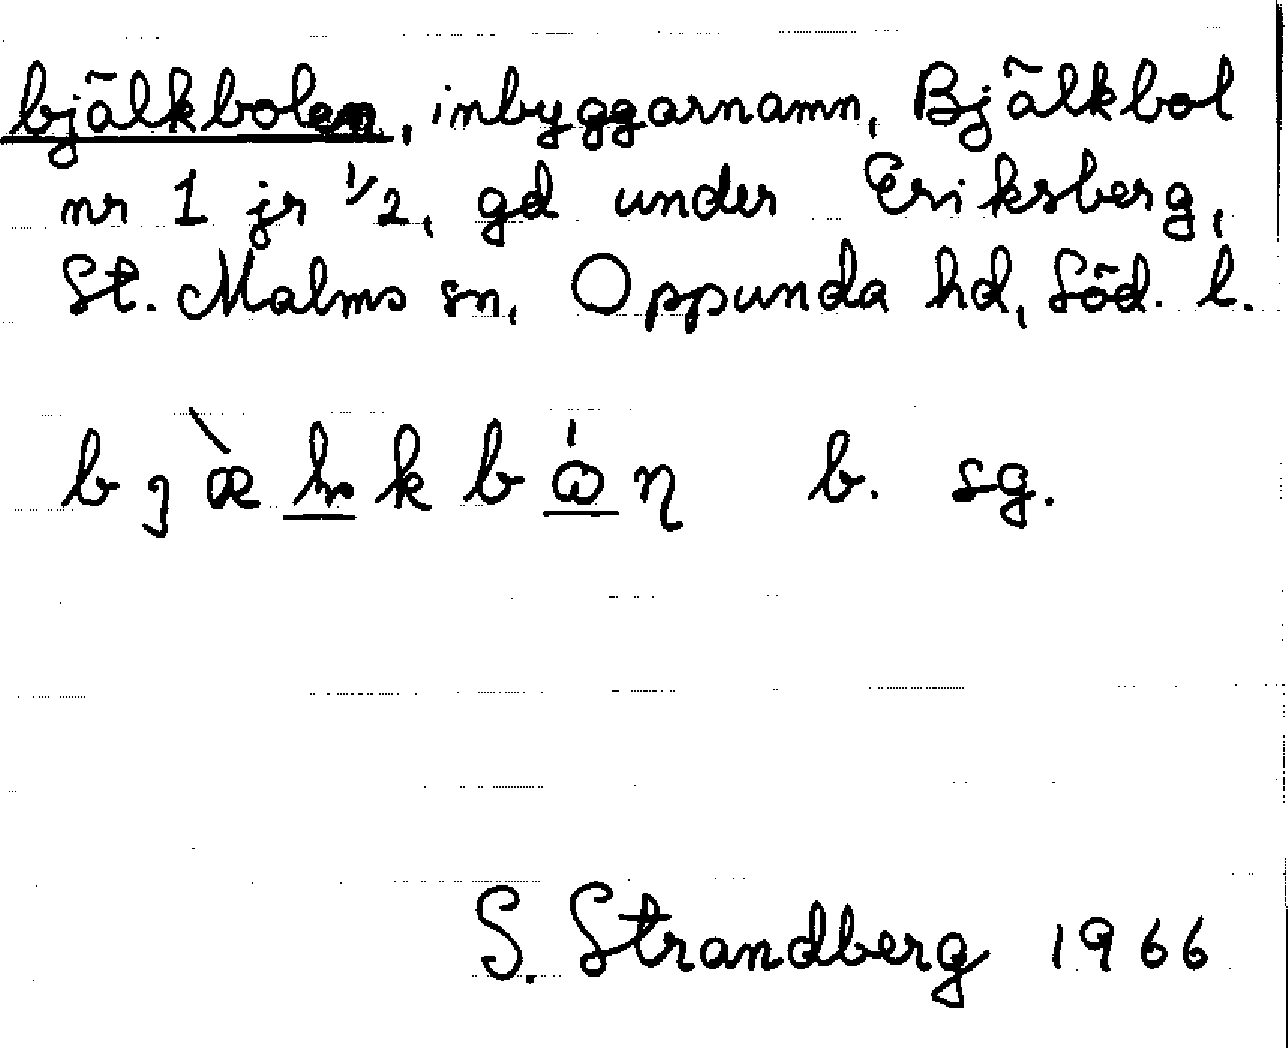 bjälkbolen, inbyggarnamn, Bjälkbol
nr 1 jr 1/2, gd under Eriksberg,
St. Malms sn, Oppunda hd, Söd. l.
b. sg.
S. Strandberg 1966